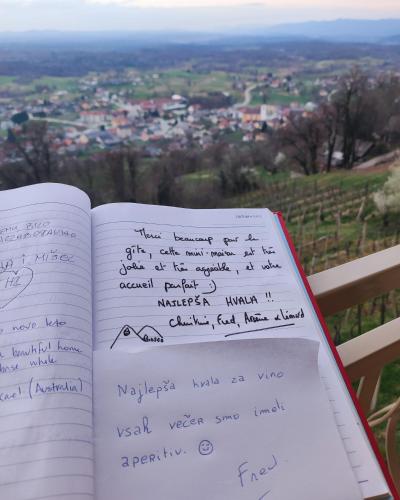 BILO
NEZABORAVNO
I MIŠEL
novo leto
beautiful home
whole
(Australia)
Merci beaucoup pour le
gîte, cette mini-maison est très
jolie et très agréable, et votre
accueil parfait :)
NAJLEPŠA HVALA !!
Christine, Fred, Arsène & Léonard
Bisous
Najlepša hvala za vino
vsak večer smo imeli
aperitiv. ☺
Fred